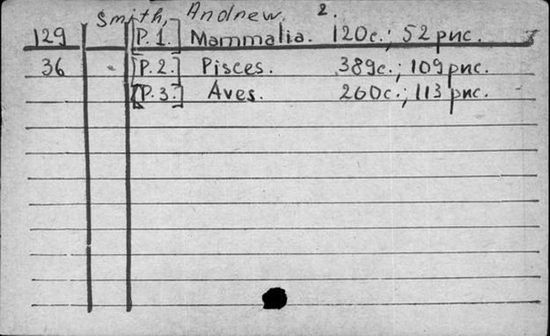 Smith, Andrew. 2.
129 [P. 1.] Mammalia. 120c.; 52 рис.
36 [P. 2.] Pisces. 389c.; 109 рис.
[P. 3.] Aves. 260c.; 113 рис.